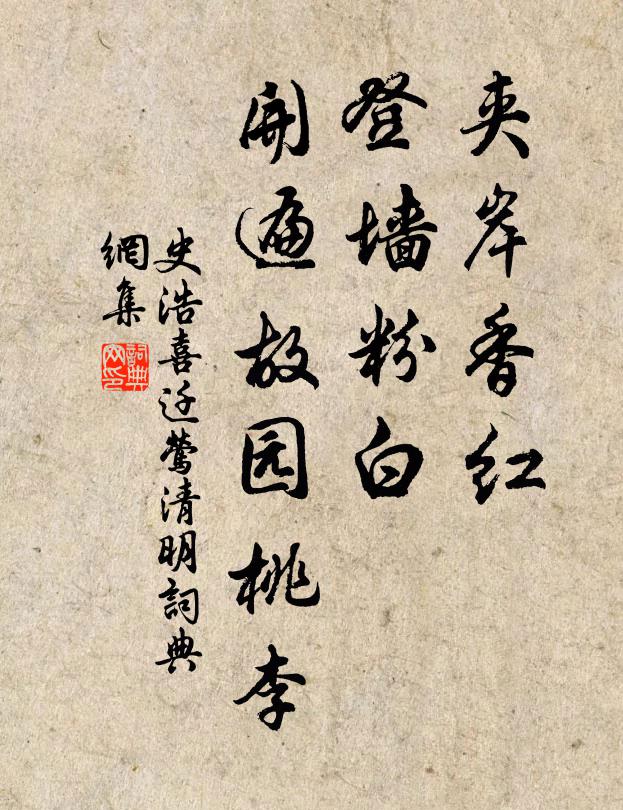 夹岸香红
登墙粉白
开遍故园桃李
史浩喜迁莺清明詞典
網集
詞典
网印